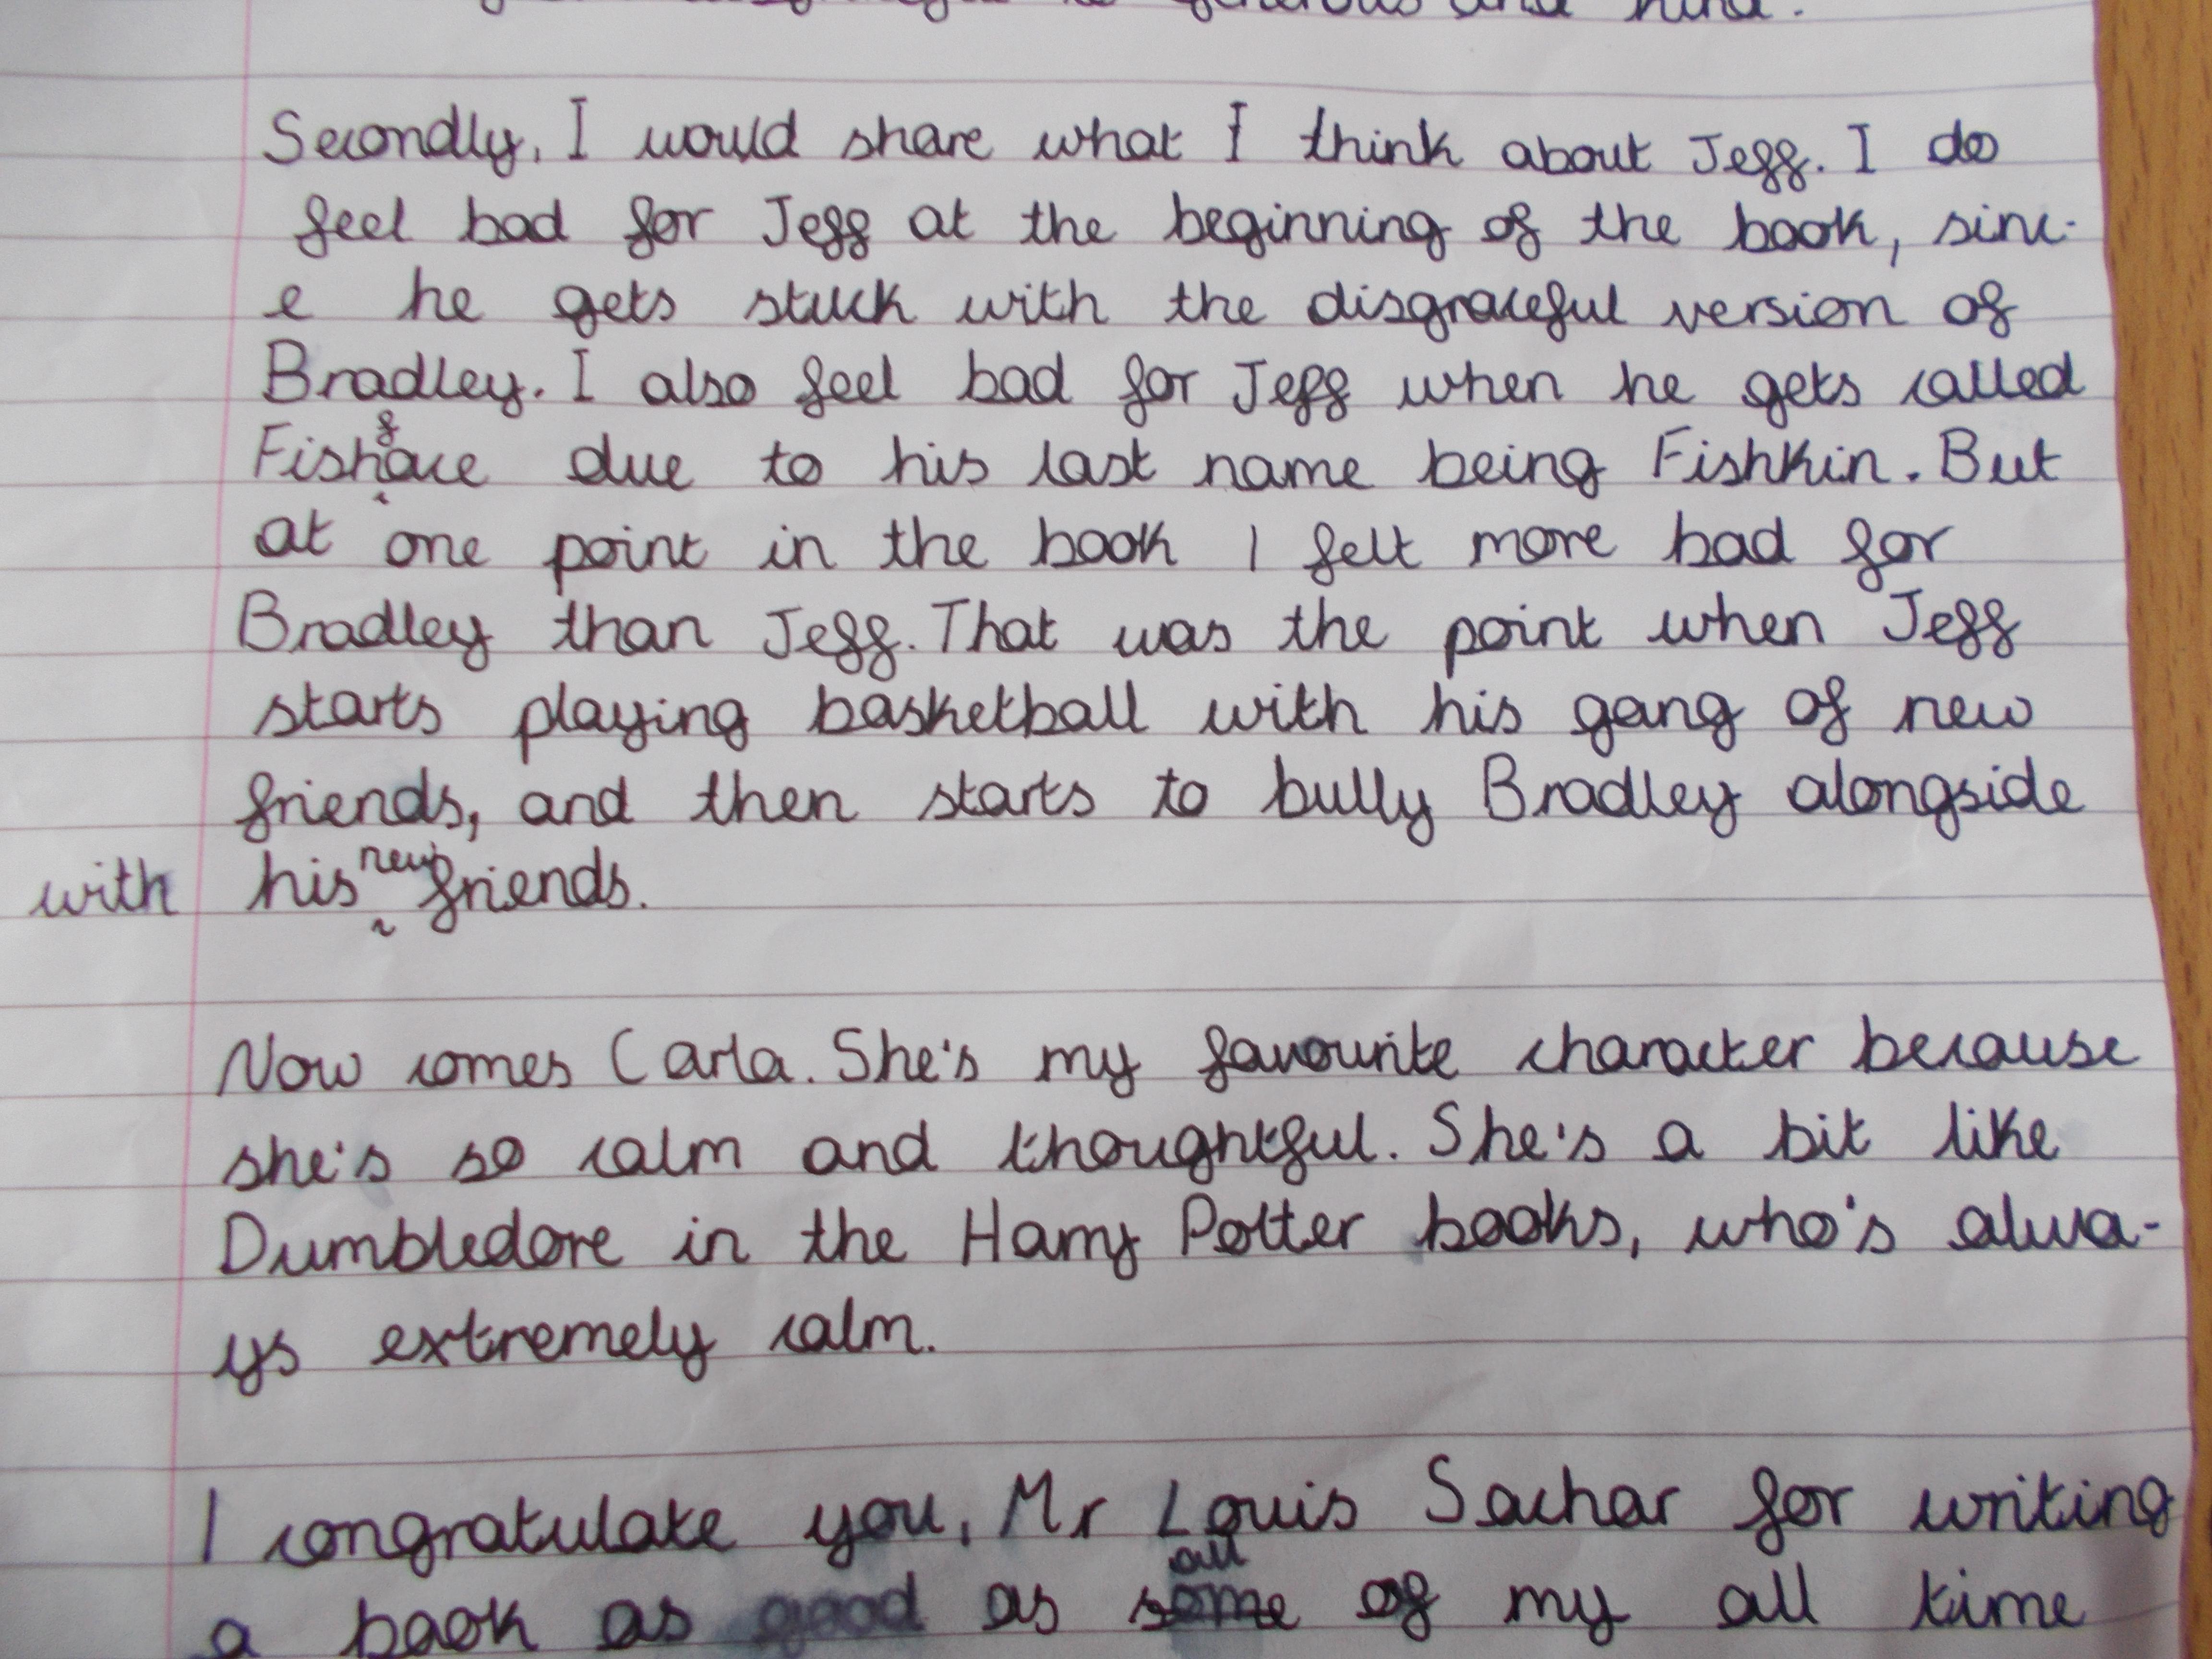 generous and kind.
Secondly, I would share what I think about Jeff. I do
feel bad for Jeff at the beginning of the book, sinc-
e he gets stuck with the disgraceful version of
Bradley. I also feel bad for Jeff when he gets called
Fishface due to his last name being Fishkin. But
at one point in the book I felt more bad for
Bradley than Jeff. That was the point when Jeff
starts playing basketball with his gang of new
friends, and then starts to bully Bradley alongside
with his new friends.
Now comes Carla. She's my favourite character because
she's so calm and thoughtful. She's a bit like
Dumbledore in the Harry Potter books, who's alwa-
ys extremely calm.
I congratulate you, Mr Louis Sachar for writing
a book as good as some all of my all time